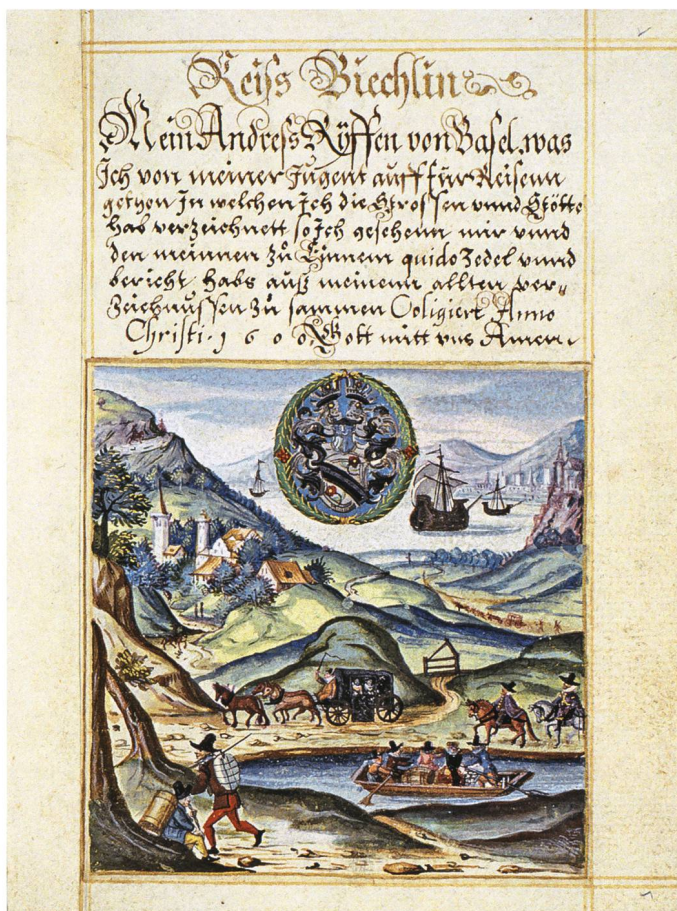 Reiss Biechlin
Mein Andress Ryffen von Basel, was
Ich von meiner Jugent auff für Reisenn
gethon In welchen Ich die Grossen unnd Stötte
hab verzeichnett so Ich gesehenn mir unnd
den meinnen zů Einnem quido Zedel unnd
bericht, habs auß meinenn allten ver-
Zeichnussen zů sammen Coligiert Anno
Christi · 1600 Gott mitt uns Amen